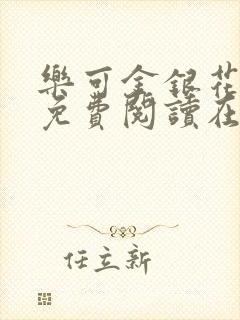 樂可金銀花
免費閱讀在
任立新